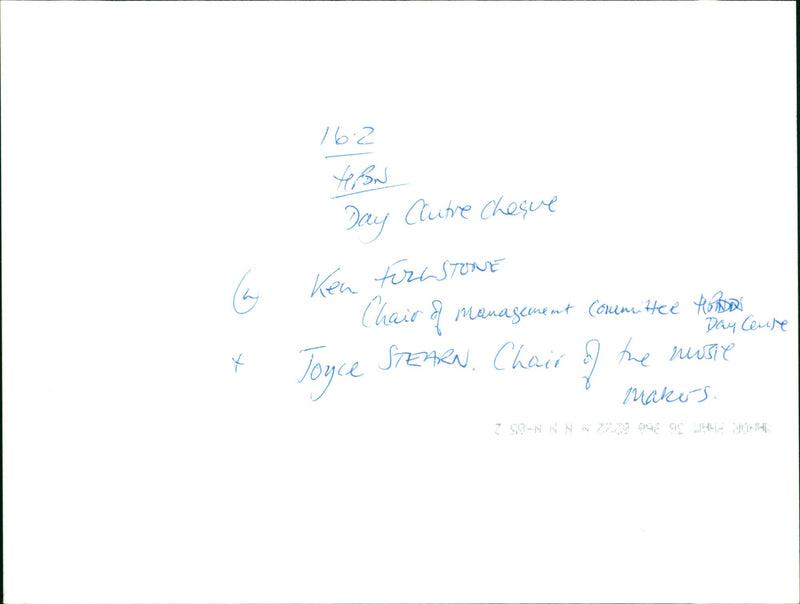 16.2
Day Centre cheque
(L) Ken FULLSTONE
Chair of management committee
Day Centre
+ Joyce STEARN. Chair of the music
makers.